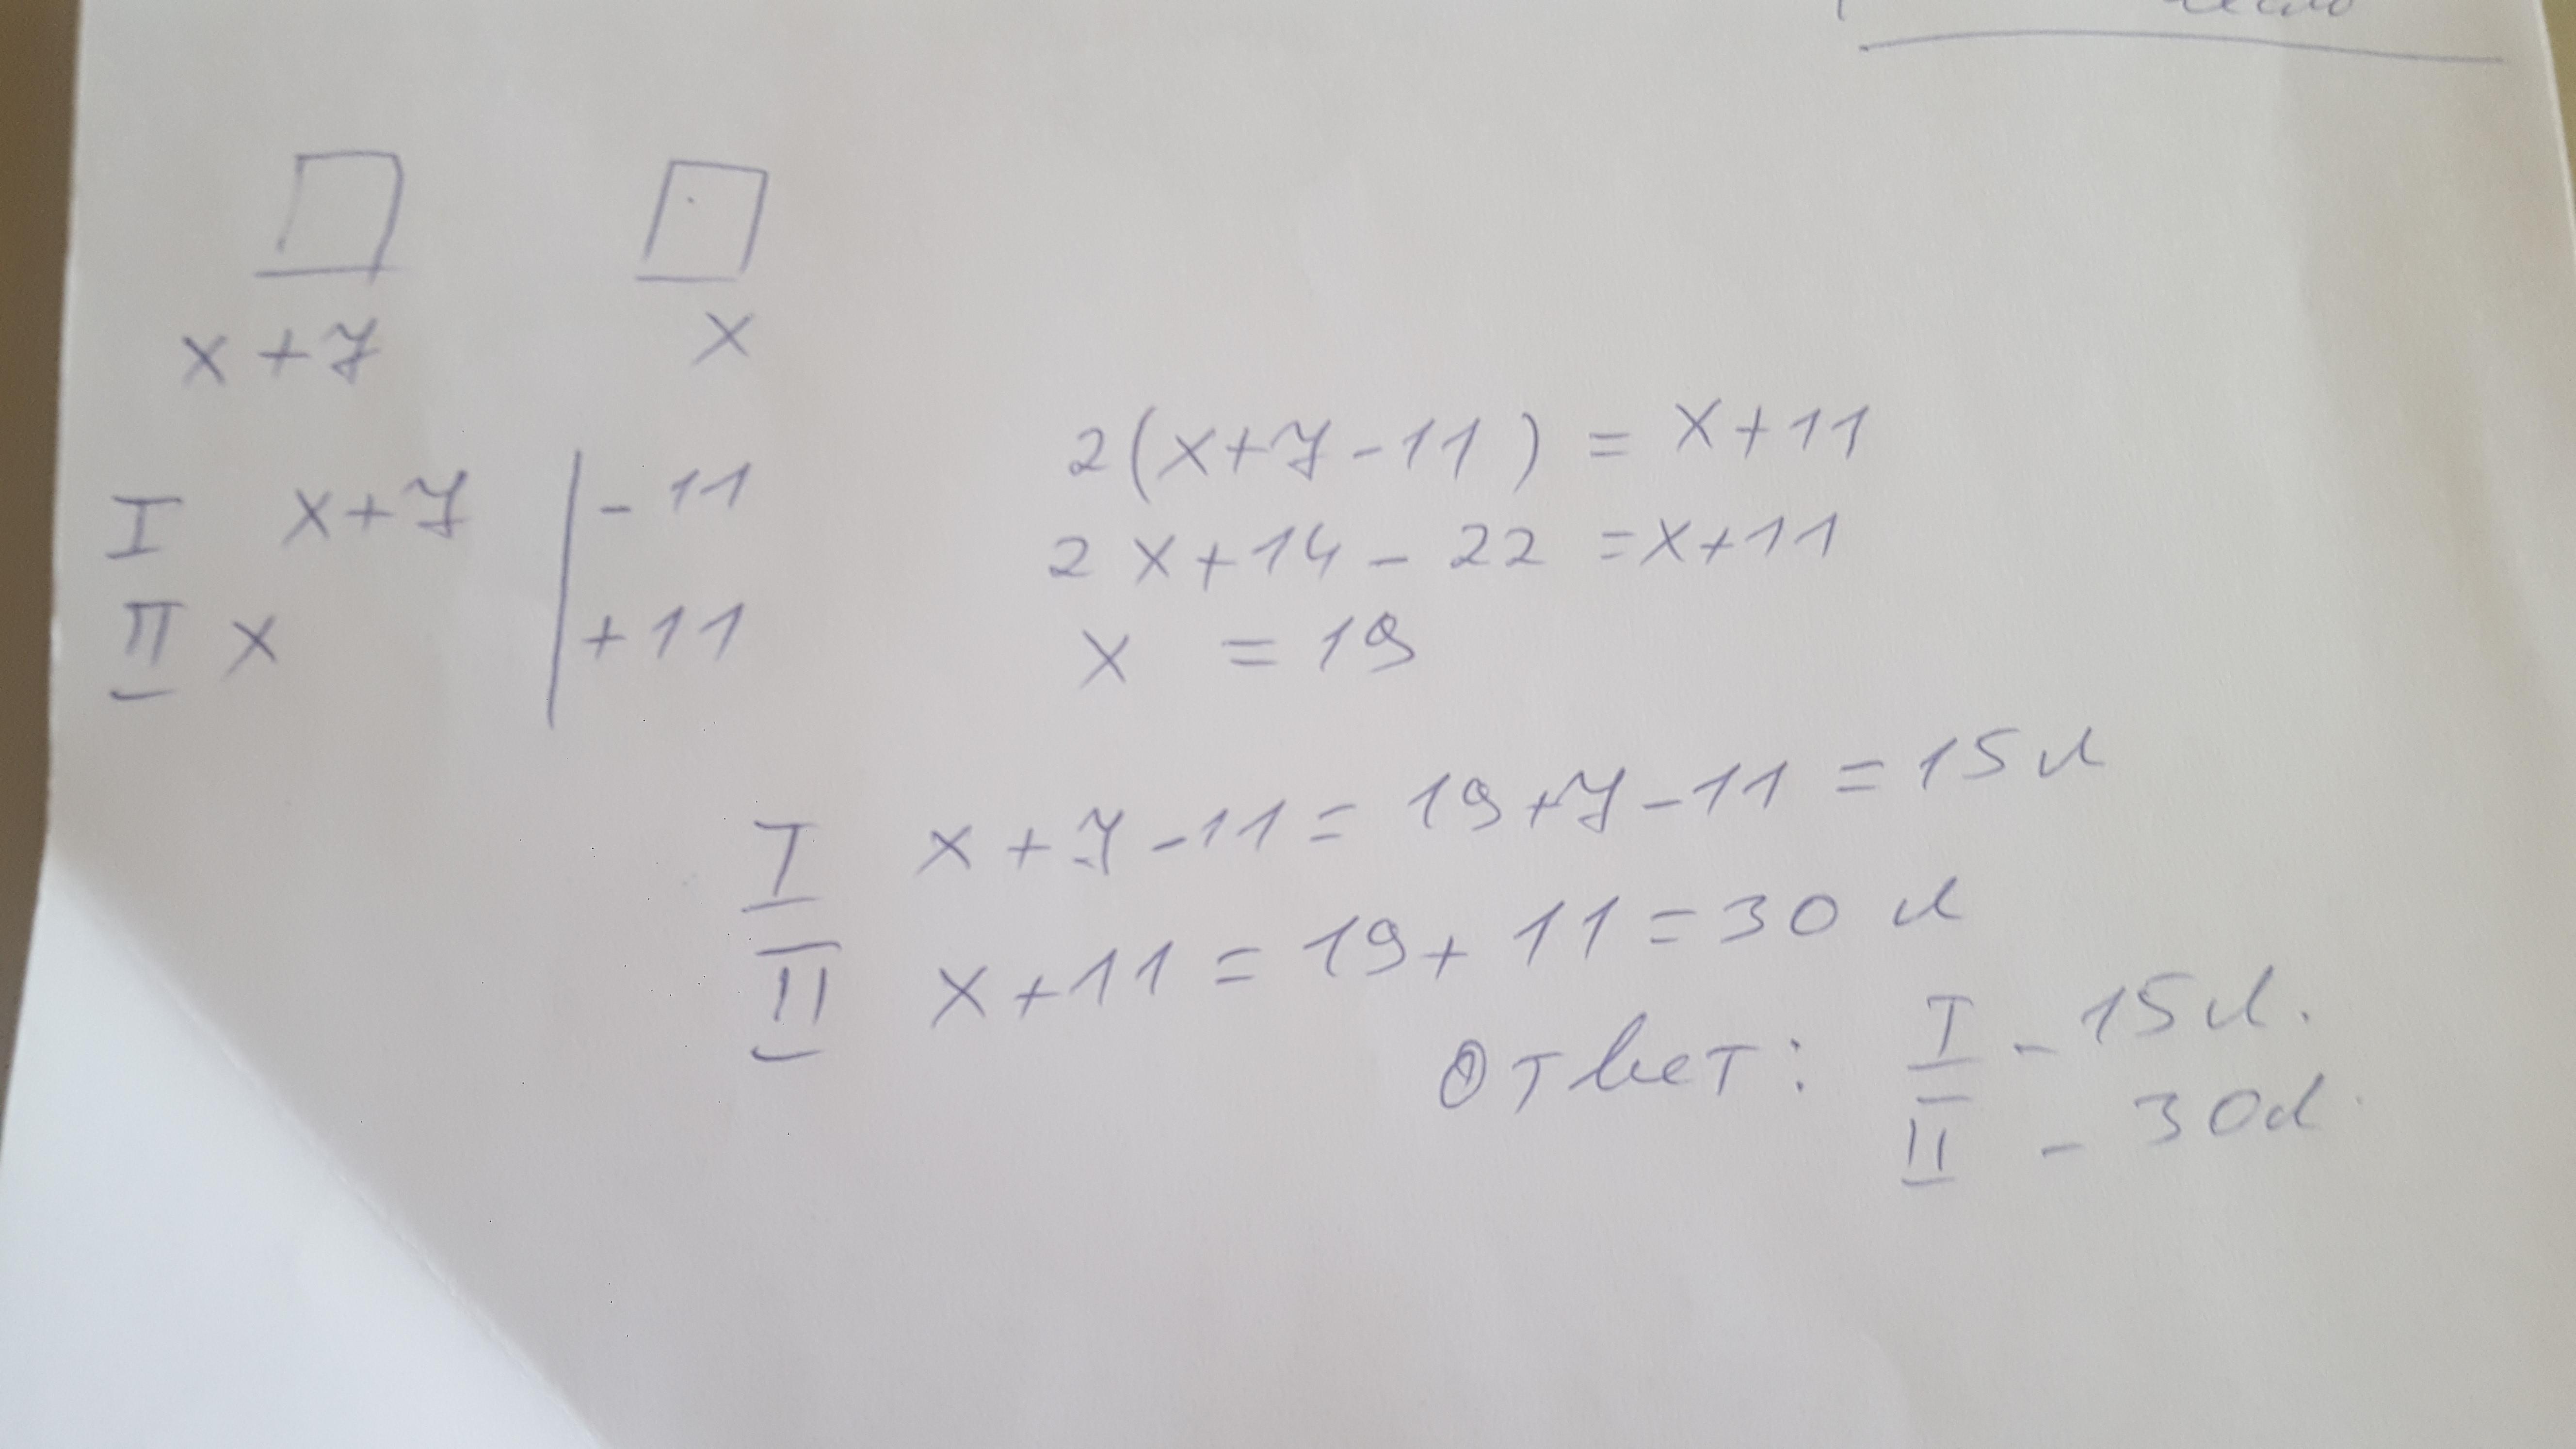 x+7 x
I x+7 | -11
II x | +11
2(x+7-11) = x+11
2x+14-22 =x+11
x = 19
I x+7-11= 19+7-11 =15л
II x+11= 19+11=30 л
Ответ: I - 15л.
II - 30л.